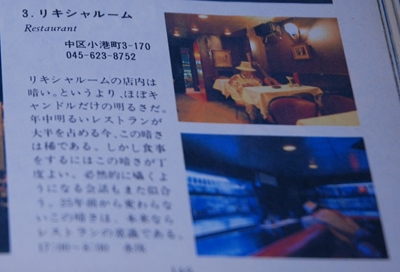 3. リキシャルーム
Restaurant
中区小港町3-170
045-623-8752
リキシャルームの店内は
暗い。というより、ほぼキ
ャンドルだけの明るさだ。
年中明るいレストランが
大半を占める今、この暗さ
は稀である。しかし食事
をするにはこの暗さが丁
度よい。必然的に囁くよ
うになる会話もまた似合
う。25年前から変わらな
いこの暗さは、本来なら
レストランの常識である。
17:00〜